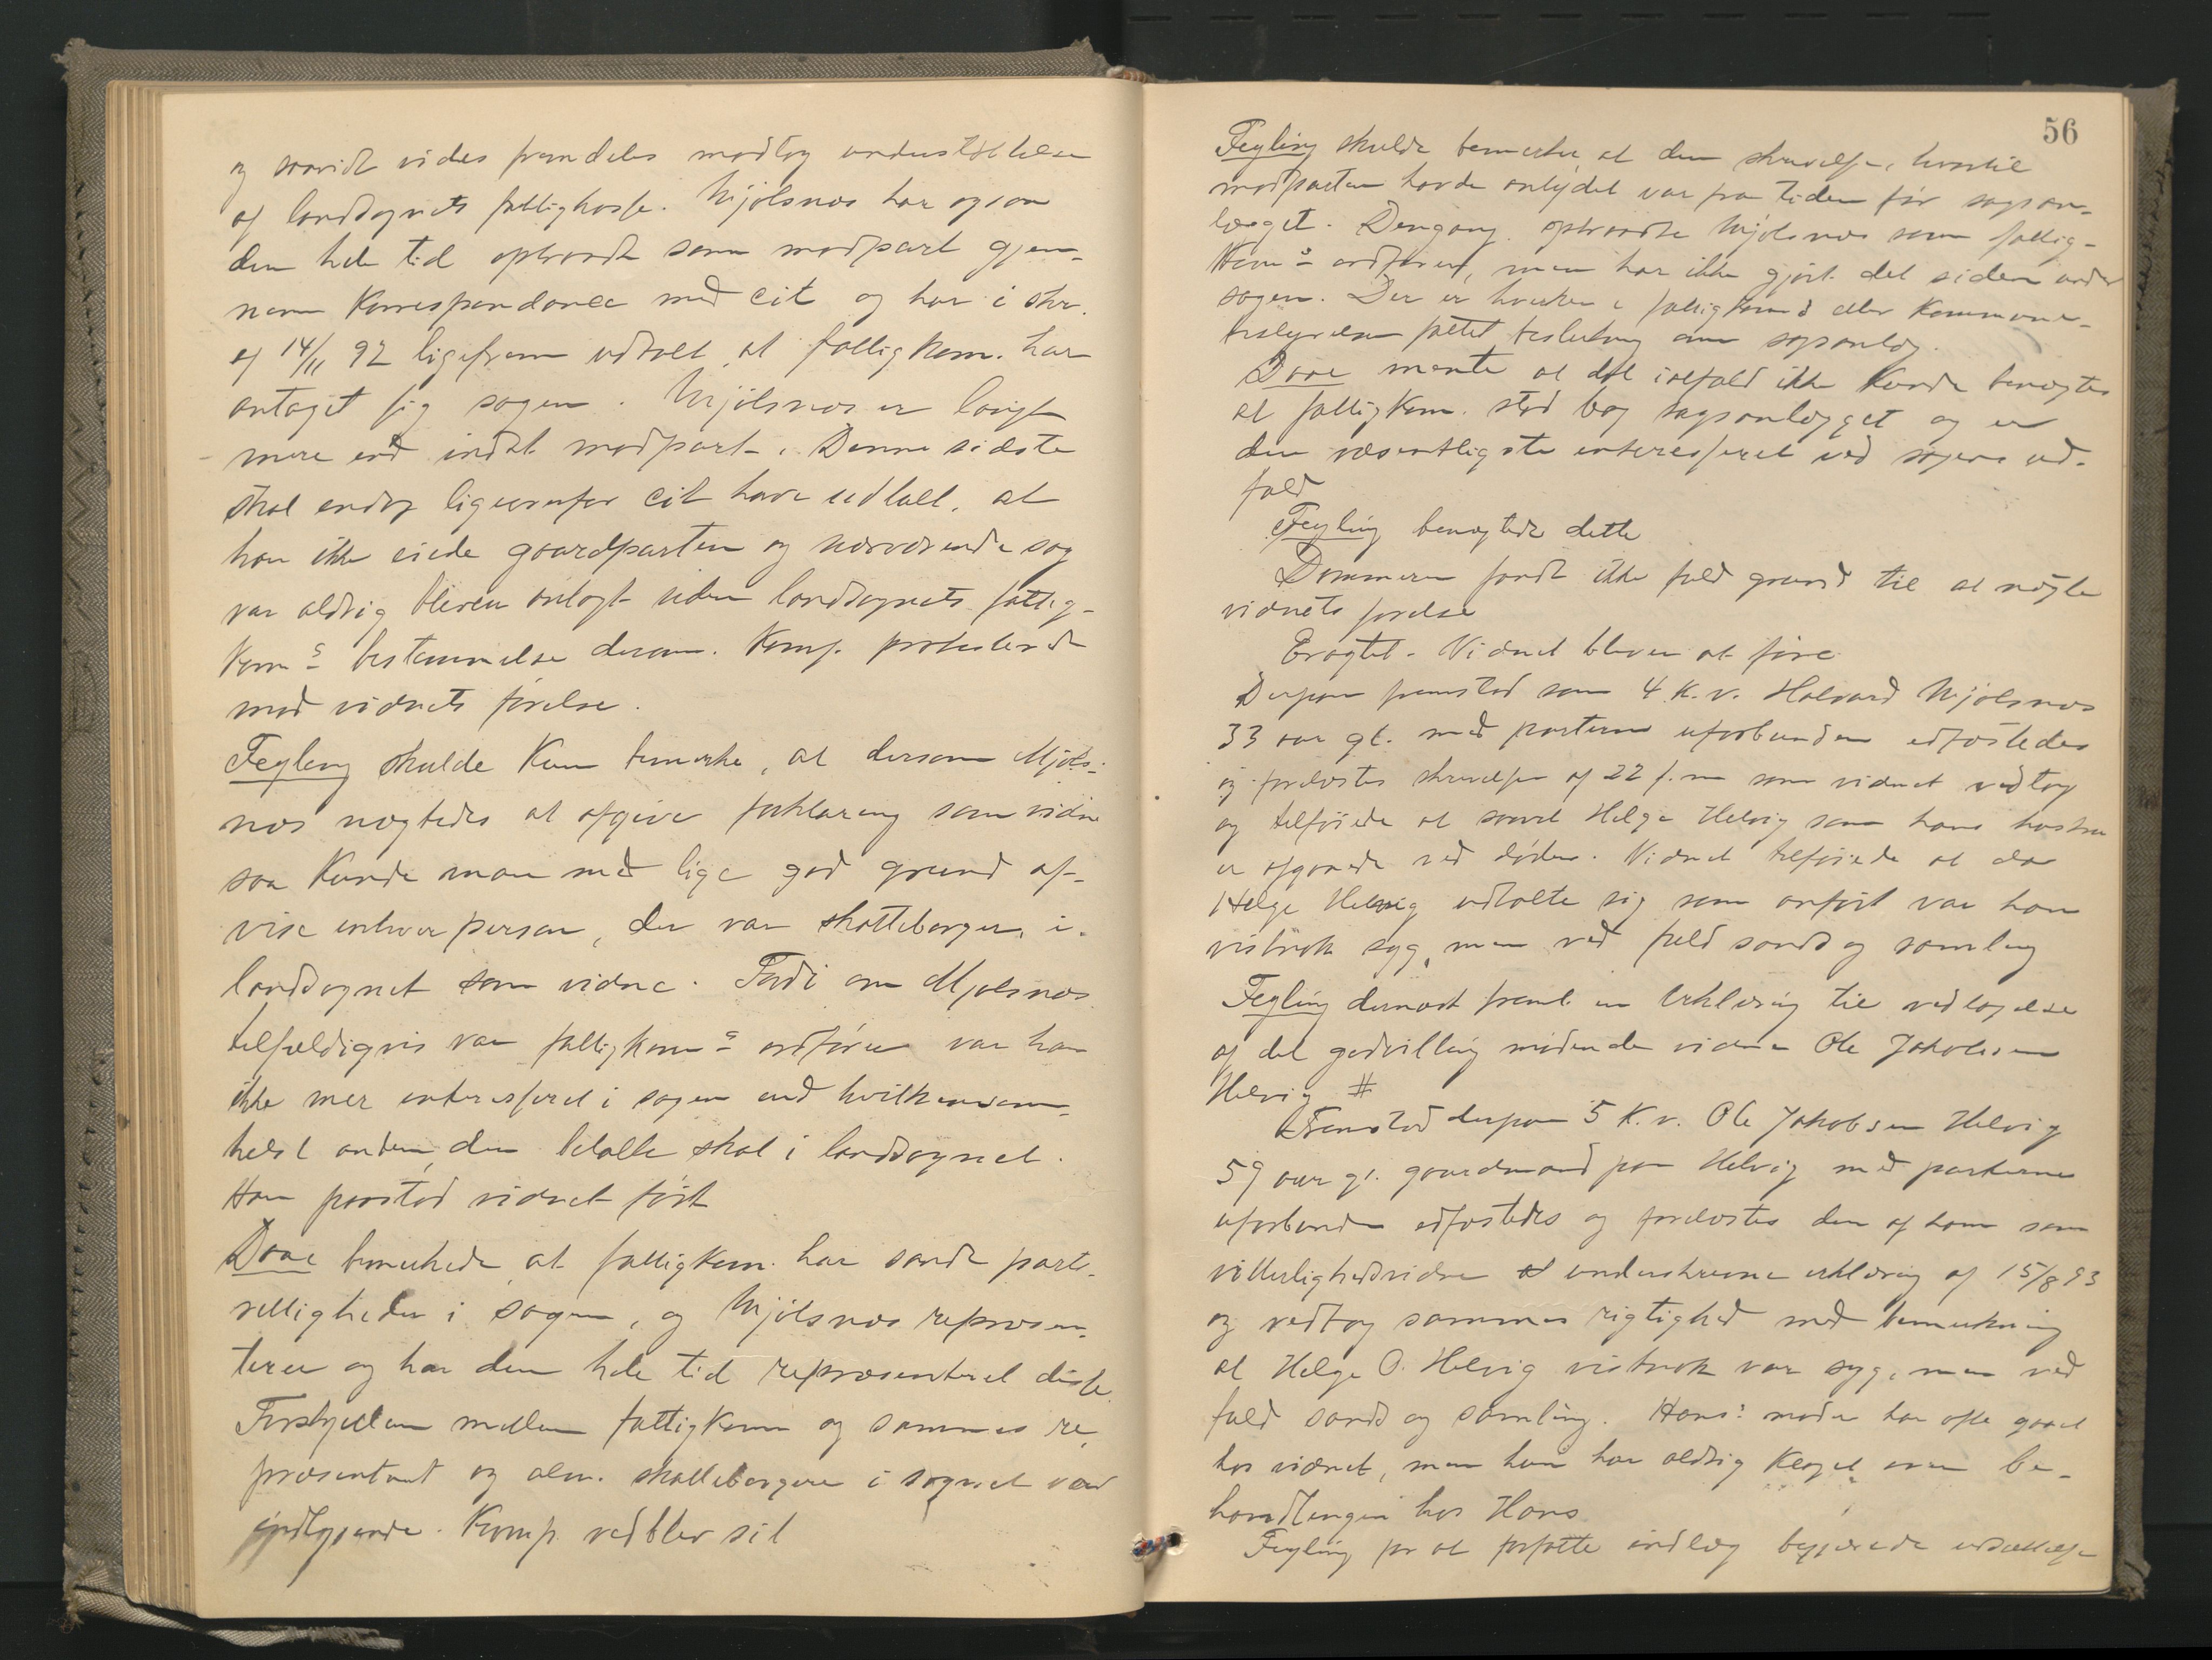 og saavidt vides fremdeles modtog understøttelse
af landsognets fattigkasse. Mjølsnes har ogsaa
den hele tid optraadt som modpart gjen-
nem Korrespondance med cit og har i skr.
af 14/11 92 ligefrem udtalt at fattigkom. har
antaget sig sagen. Mjølsnes er langt
mere end indst modpart. Denne sidste
skal endog ligeoverfor cit have udtalt, at
han ikke eiede gaardparten og nærværende sag
var aldrig bleven anlagt uden landsognets fattig-
koms bestemmelse derom. Komp. protesterede
mod vidnets førelse.
Fegling skulde kun bemerke, at dersom Mjøls-
nes nægtedes at afgive forklaring som vidne
saa kunde man med lige god grund af-
vise enhver person, der var skatteborger i
landsognet som vidne. Fordi om Mjølsnes
tilfældigvis var fattigkoms ordfører var han
ikke mer interesseret i sagen end hvilkensom-
helst anden, der betalte skat i landsognet.
Han paastod vidnet ført
Daae bemerkede at fattigkom. har sande parts-
rettigheder i sagen, og Mjølsnes repræsen-
terer og har den hele tid repræsenteret disse
Forskjellen mellem fattigkom og sammes re-
præsentant og alm. skatteborgere i sognet var
indlysende. Komp vedblev sit
56
Fegling skulde bemerke at den skrivelse, hvortil
modparten havde antydet var fra tiden før sagsan-
lægget. Dengang optraadte Mjølsnes som fattig-
koms ordfører, men har ikke gjort det siden under
sagen. Der er hverken i fattigkom eller Kommune-
bestyrelsen fattet beslutning om sagsanlæg.
Daae mente at det ialfald ikke kunde benægtes
at fattigkom. stod bag sagsanlægget og er
den væsentligste interesseret ved sagens ud-
fald
Fegling benægtede dette
Dommeren fandt ikke fuld grund til at nægte
vidnets førelse
Eragtet. Vidnet bliver at føre
Derpaa fremstod som 4 K. v. Halvard Mjølsnes
33 aar gl. med parterne uforbunden edfæstedes
og forelæstes skrivelsen af 22 f.m som vidnet vedtog
og tilføiede at saavel Helge Helvig som hans hustru
er afgaaede ved døden. Vidnet tilføiede at da
Helge Helvig udtalte sig som anført var han
vistnok syg, men ved fuld sands og samling
Fegling dernæst freml. en Erklæring til vedtagelse
af det godvillig mødende vidne Ole Jakobsen
Helvig #
Fremstod derpaa 5 K. v. Ole Jakobsen Helvig
59 aar gl. gaardmand paa Helvig med parterne
uforbunden edfæstedes og forelæstes den af ham som
vitterlighedsvidne underskrevne erklæring af 15/8 93
og vedtog sammes rigtighed med bemerkning
at Helge O. Helvig vistnok var syg, men ved
fuld sands og samling. Hans: moder har ofte gaaet
hos vidnet, men hun har aldrig klaget over be-
handlingen hos Hans
Fegling for at forfatte indlæg begjærede udsættelse